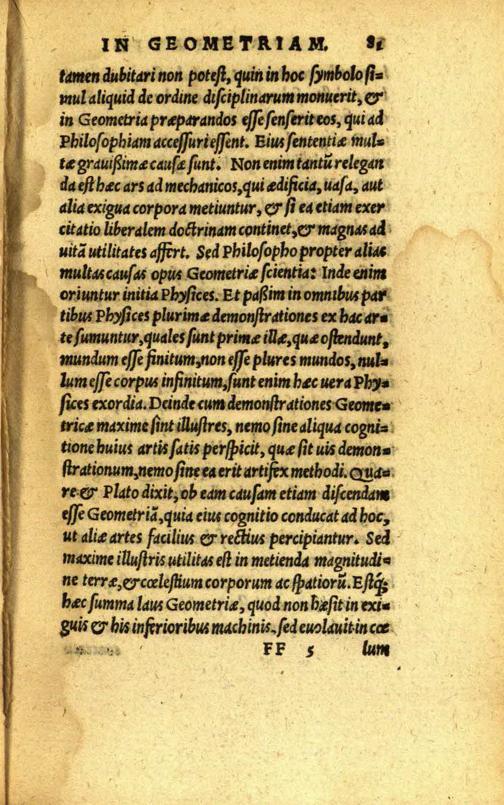 IN GEOMETRIAM. 81
tamen dubitari non potest, quin in hoc symbolo si=
mul aliquid de ordine disciplinarum monuerit, &
in Geometria præparandos esse senserit eos, qui ad
Philosophiam accessuri essent. Eius sententiæ mul=
tæ grauißimæ causæ sunt. Non enim tantũ relegan
da est hæc ars ad mechanicos, qui ædificia, uasa, aut
alia exigua corpora metiuntur, & si ea etiam exer
citatio liberalem doctrinam continet, & magnas ad
uitã utilitates affert. Sed Philosopho propter alias
multas causas opus Geometriæ scientia: Inde enim
oriuntur initia Physices. Et paßim in omnibus par
tibus Physices plurimæ demonstrationes ex hac ar=
te sumuntur, quales sunt primæ illæ, quæ ostendunt,
mundum esse finitum, non esse plures mundos, nul=
lum esse corpus infinitum, sunt enim hæc uera Phy=
sices exordia. Deinde cum demonstrationes Geome=
tricæ maxime sint illustres, nemo sine aliqua cogni=
tione huius artis satis perspicit, quæ sit uis demon=
strationum, nemo sine ea erit artifex methodi. Qua=
re & Plato dixit, ob eam causam etiam discendam
esse Geometriã, quia eius cognitio conducat ad hoc,
ut aliæ artes facilius & rectius percipiantur. Sed
maxime illustris utilitas est in metienda magnitudi=
ne terræ, & cœlestium corporum ac spatiorũ. Estq́;
hæc summa laus Geometriæ, quod non hæsit in exi=
guis & his inferioribus machinis, sed euolauit in cœ
FF 5 lum